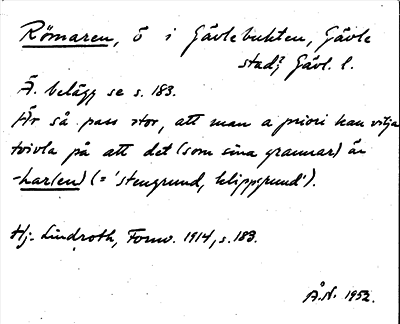 Römaren, ö i Gävlebukten, Gävle
stads Gävl. l.
Ä. belägg se s. 183.
Är så pass stor, att man a priori kan vilja
tvivla på att det (som sina grannar) är
-har(en) (= 'stengrund, klippgrund').
Hj. Lindroth, Fornv. 1914, s. 183.
Å.N. 1952.